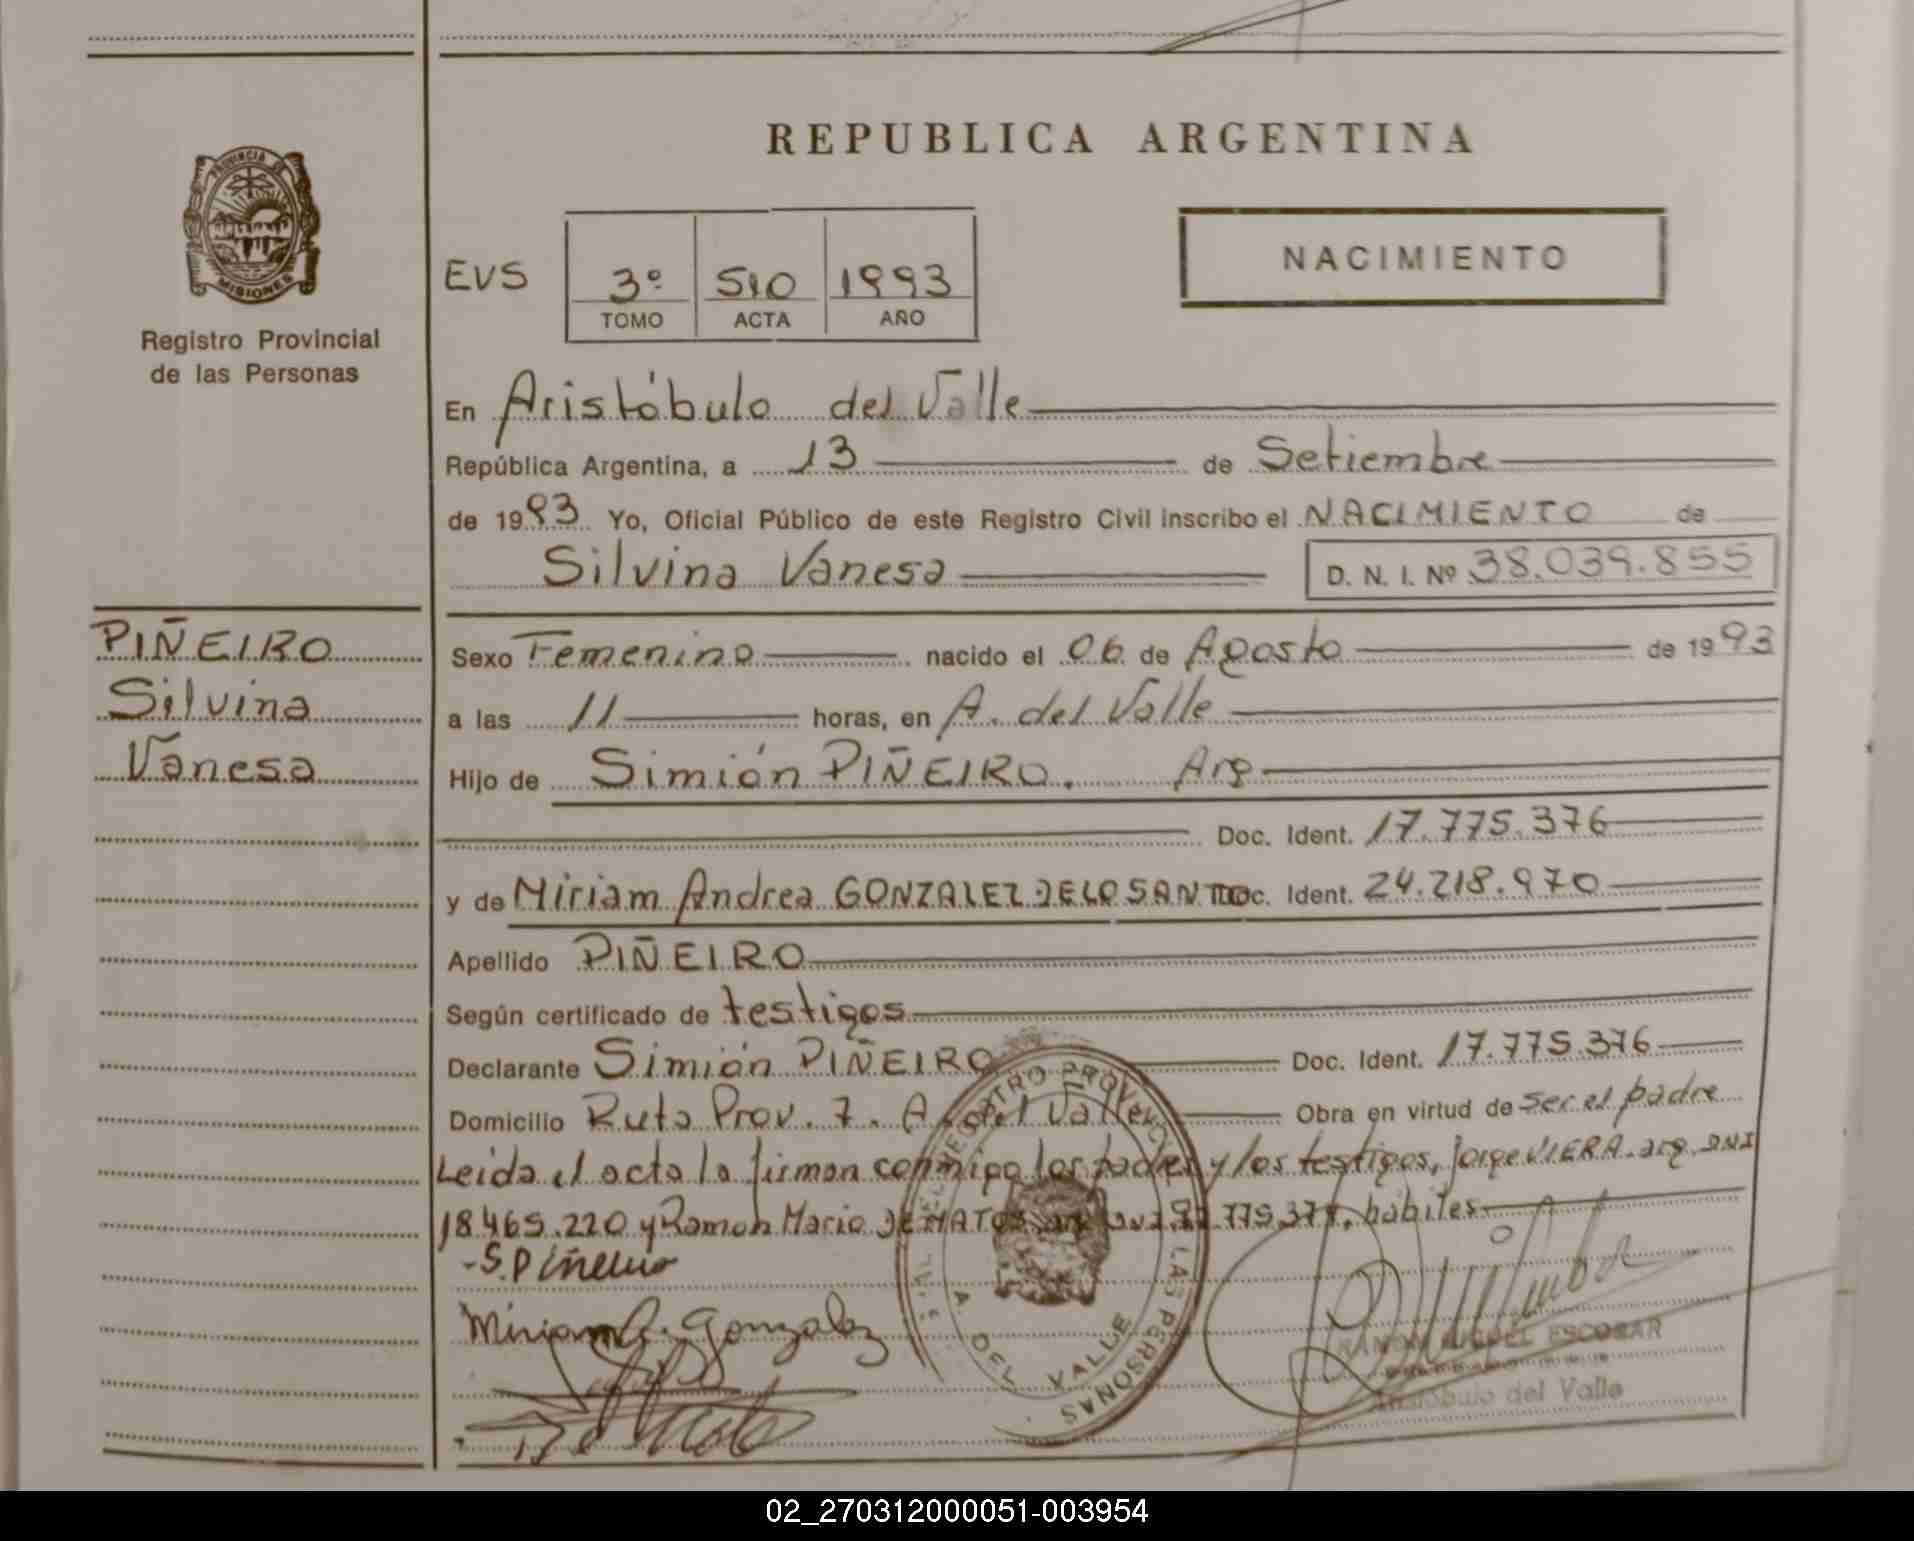 REPUBLICA ARGENTINA
PROVINCIA DE MISIONES
Registro Provincial
de las Personas
NACIMIENTO
EVS 3º 510 1993
TOMO ACTA AÑO
En Aristóbulo del Valle
República Argentina, a 13 de Setiembre
de 1993 Yo, Oficial Público de este Registro Civil inscribo el NACIMIENTO de
Silvina Vanesa D. N. I. Nº 38.039.855
PIÑEIRO
Silvina
Vanesa
Sexo Femenino nacido el 06 de Agosto de 1993
a las 11 horas, en A. del Valle
Hijo de Simión PIÑEIRO. Arg
Doc. Ident. 17.775.376
y de Miriam Andrea GONZALEZ DELOSANTO Doc. Ident. 24.218.970
Apellido PIÑEIRO
Según certificado de testigos
Declarante Simión PIÑEIRO Doc. Ident. 17.775.376
Domicilio Ruta Prov. 7. A. del Valle Obra en virtud de ser el padre
Leida el acta la firman conmigo los padres y los testigos, Jorge VIERA. arg. DNI
18.465.220 y Ramon Mario DE MATOS habiles
S. Piñeiro
Miriam A. Gonzalez
REGISTRO PROVINCIAL DE LAS PERSONAS
A. DEL VALLE
RAMON MIGUEL ESCOBAR
Aristóbulo del Valle
02_270312000051-003954